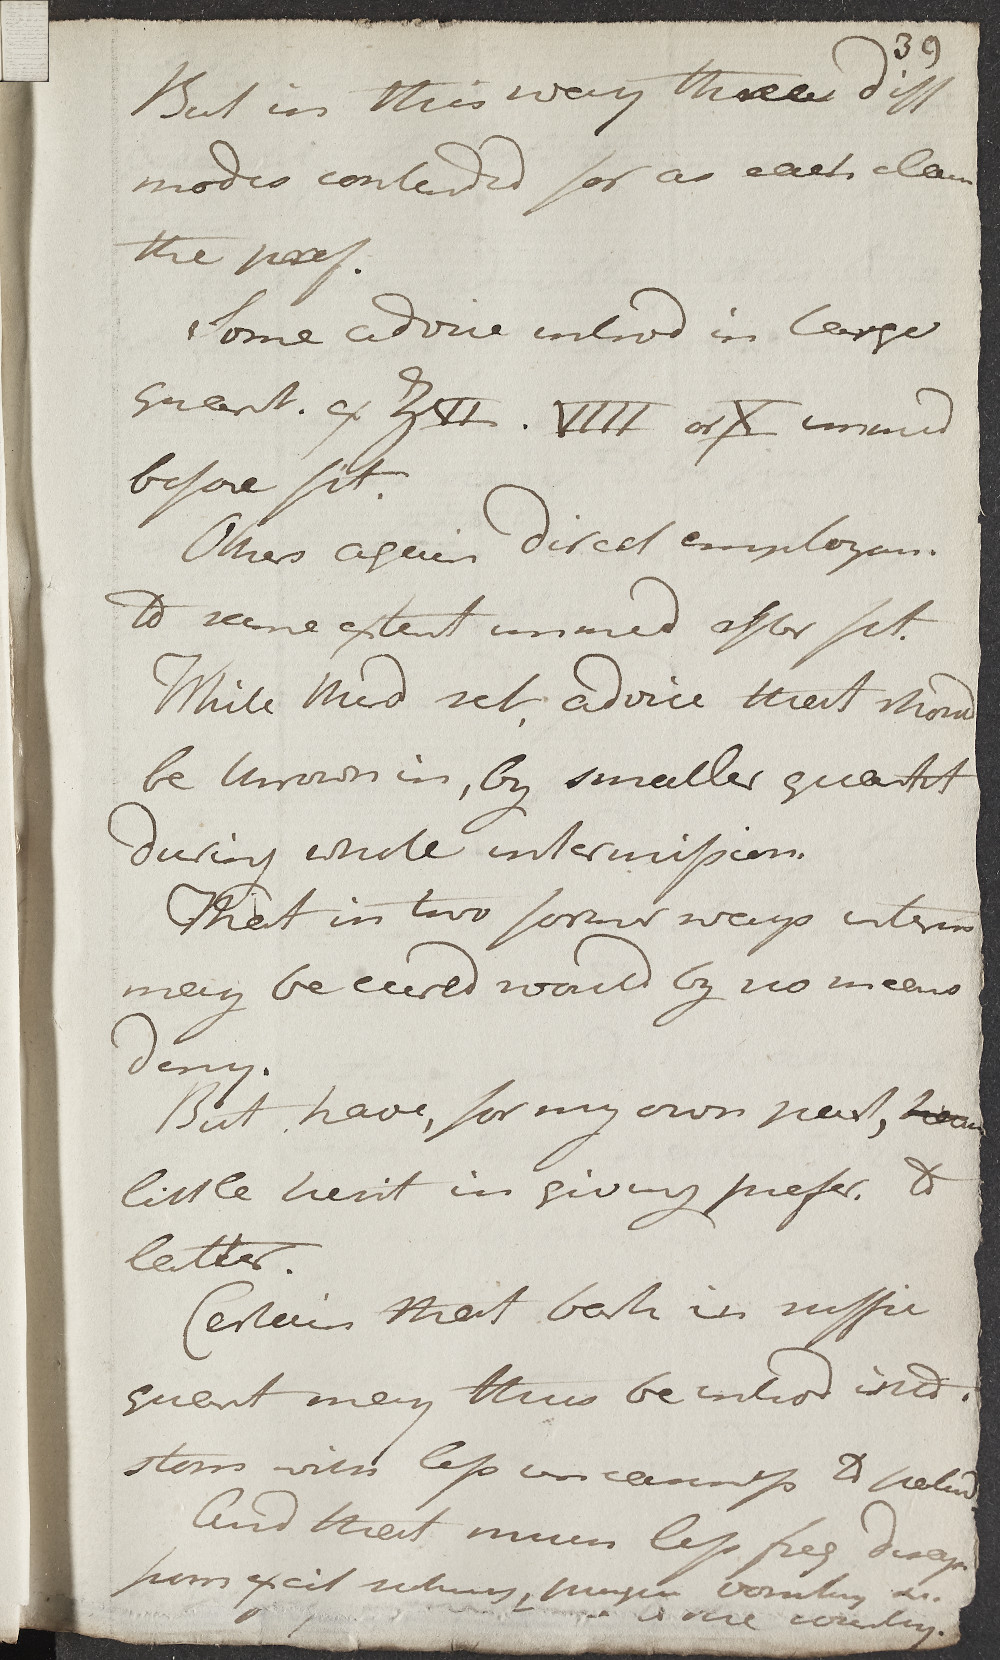 39
But in this way three diff
modes contended for as each claim
the pref.
Some advice introd in large
quant. of ℥VI. VIIII or X immed
before fit.
Others again direct employm.
to same extent immed after fit.
While third set, advice that should
be thrown in, by smaller quantit
during whole intermission.
That in two former ways interm
may be cured would by no means
deny.
But have, for my own part,
little hesit in giving prefer. to
latter.
Certain that bark in suffic
quant may thus be introd into
stom with less uneasiness to patient
And that much less freq disapp
from excit vomiting &c.